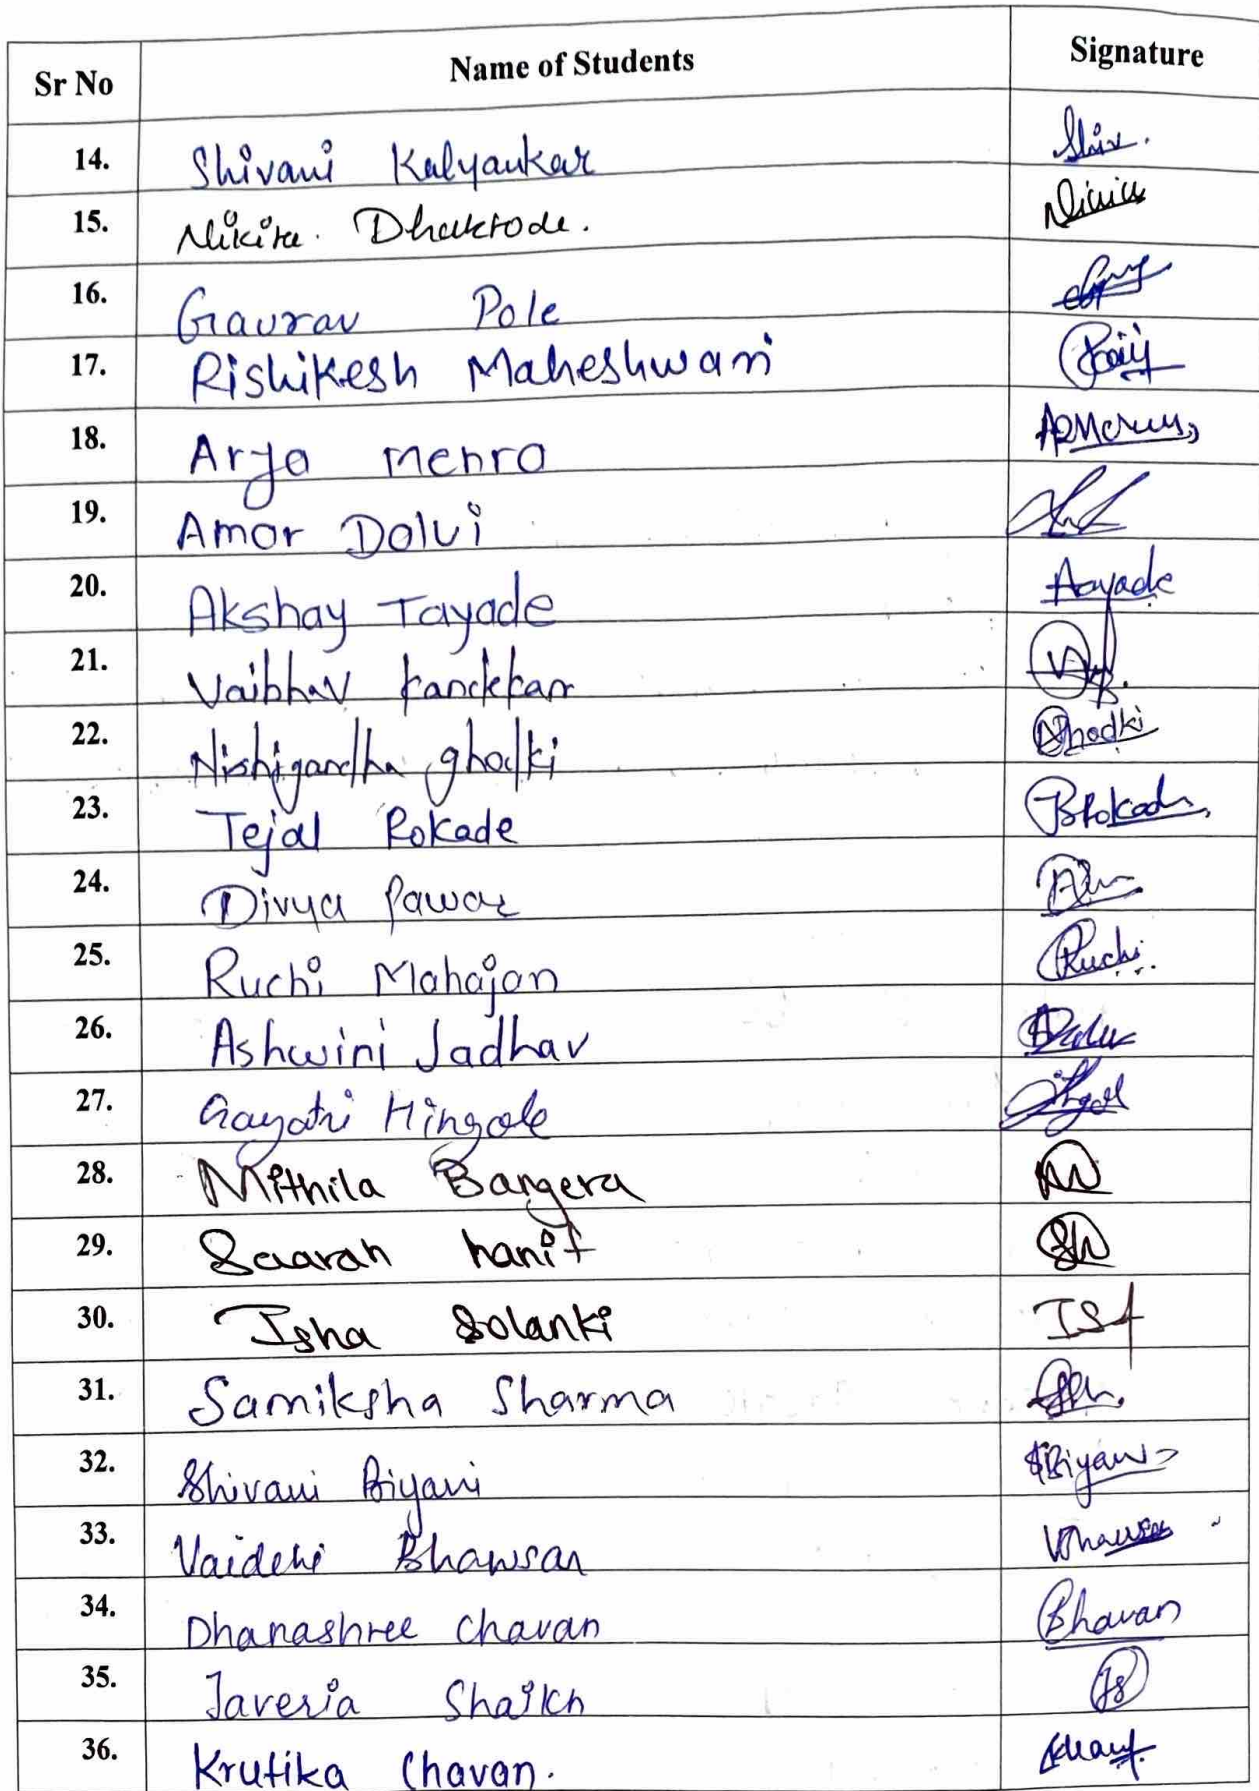 Sr No Name of Students Signature
14. Shivani Kalyankar Shiv.
15. Nikita. Dhaktode.
16. Gaurav Pole
17. Rishikesh Maheshwari
18. Arya Mehra
19. Amar Dalvi
20. Akshay Tayade Aayade
21. Vaibhav Kandkkar
22. Nishigandha ghodki Nhodki
23. Tejal Rokade
24. Divya Pawar
25. Ruchi Mahajan Ruchi
26. Ashwini Jadhav
27. Gayatri Hingole
28. Mithila Bangera
29. Saarah hanif SH
30. Isha Solanki IS
31. Samiksha Sharma
32. Shivani Biyani SBiyani
33. Vaidehi Bhawsar
34. Dhanashree Chavan
35. Javeria Shaikh JS
36. Krutika Chavan.